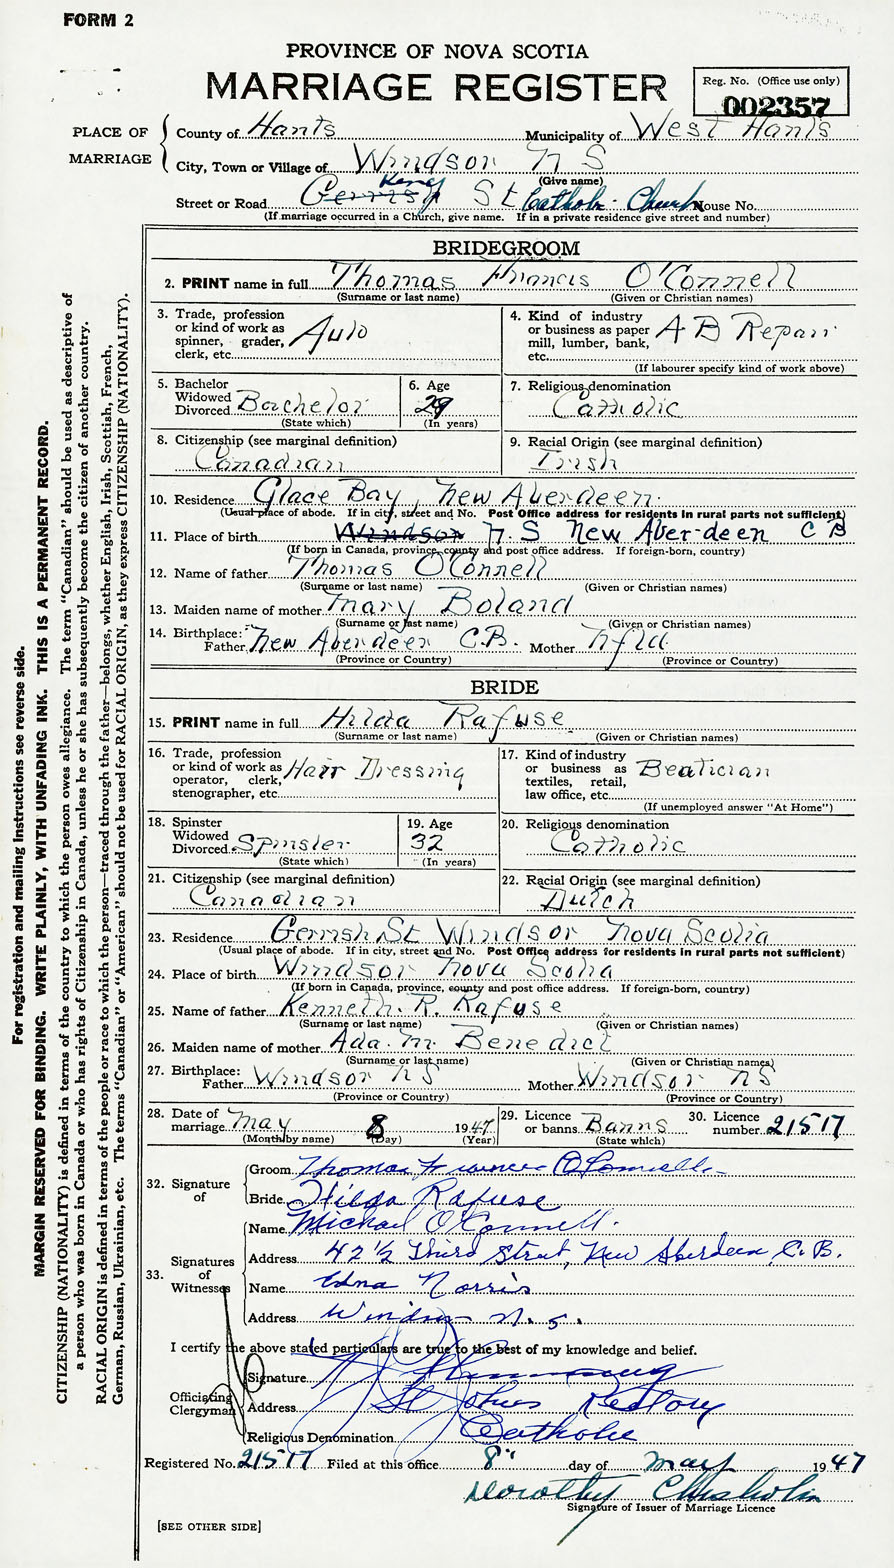 FORM 2
PROVINCE OF NOVA SCOTIA
MARRIAGE REGISTER
Reg. No. (Office use only)
002357
PLACE OF MARRIAGE
County of Hants Municipality of West Hants
City, Town or Village of Windsor N S
(Give name)
Street or Road Gerrish King St Catholic Church House No.
(If marriage occurred in a Church, give name. If in a private residence give street and number)
BRIDEGROOM
2. PRINT name in full Thomas Francis O'Connell
(Surname or last name) (Given or Christian names)
3. Trade, profession or kind of work as spinner, grader, clerk, etc. Auto
4. Kind of industry or business as paper mill, lumber, bank, etc. A B Repair
(If labourer specify kind of work above)
5. Bachelor Widowed Divorced Bachelor
(State which)
6. Age 29
(In years)
7. Religious denomination
Catholic
8. Citizenship (see marginal definition)
Canadian
9. Racial Origin (see marginal definition)
Irish
10. Residence Glace Bay, New Aberdeen.
(Usual place of abode. If in city, street and No. Post Office address for residents in rural parts not sufficient)
11. Place of birth Windsor N.S New Aberdeen C B
(If born in Canada, province, county and post office address. If foreign-born, country)
12. Name of father Thomas O'Connell
(Surname or last name) (Given or Christian names)
13. Maiden name of mother Mary Boland
(Surname or last name) (Given or Christian names)
14. Birthplace: Father New Aberdeen C.B. Mother Nfld
(Province or Country) (Province or Country)
BRIDE
15. PRINT name in full Hilda Rafuse
(Surname or last name) (Given or Christian names)
16. Trade, profession or kind of work as operator, clerk, stenographer, etc. Hair Dressing
17. Kind of industry or business as textiles, retail, law office, etc. Beatician
(If unemployed answer "At Home")
18. Spinster Widowed Divorced Spinster
(State which)
19. Age 32
(In years)
20. Religious denomination
Catholic
21. Citizenship (see marginal definition)
Canadian
22. Racial Origin (see marginal definition)
Dutch
23. Residence Gerrish St Windsor Nova Scotia
(Usual place of abode. If in city, street and No. Post Office address for residents in rural parts not sufficient)
24. Place of birth Windsor Nova Scotia
(If born in Canada, province, county and post office address. If foreign-born, country)
25. Name of father Kenneth. R. Rafuse
(Surname or last name) (Given or Christian names)
26. Maiden name of mother Ada. M. Benedict
(Surname or last name) (Given or Christian names)
27. Birthplace: Father Windsor N S Mother Windsor N S
(Province or Country) (Province or Country)
28. Date of marriage May 8 1947
(Month by name) (Day) (Year)
29. Licence or banns Banns
(State which)
30. Licence number 21517
32. Signature of
Groom Thomas Francis O'Connell
Bride Hilda Rafuse
33. Signatures of Witnesses
Name Michael O'Connell.
Address 42 1/2 Third Street, New Aberdeen, C. B.
Name Edna Norris
Address Windsor N. S.
I certify the above stated particulars are true to the best of my knowledge and belief.
Officiating Clergyman
Signature
Address St Johns Rectory
Religious Denomination Catholic
Registered No. 21517 Filed at this office 8" day of May 1947
Dorothy Chisholm
Signature of Issuer of Marriage Licence
[SEE OTHER SIDE]
For registration and mailing instructions see reverse side.
MARGIN RESERVED FOR BINDING. WRITE PLAINLY, WITH UNFADING INK. THIS IS A PERMANENT RECORD.
CITIZENSHIP (NATIONALITY) is defined in terms of the country to which the person owes allegiance. The term "Canadian" should be used as descriptive of
a person who was born in Canada or who has rights of Citizenship in Canada, unless he or she has subsequently become the citizen of another country.
RACIAL ORIGIN is defined in terms of the people or race to which the person—traced through the father—belongs, whether English, Irish, Scottish, French,
German, Russian, Ukrainian, etc. The terms "Canadian" or "American" should not be used for RACIAL ORIGIN, as they express CITIZENSHIP (NATIONALITY).